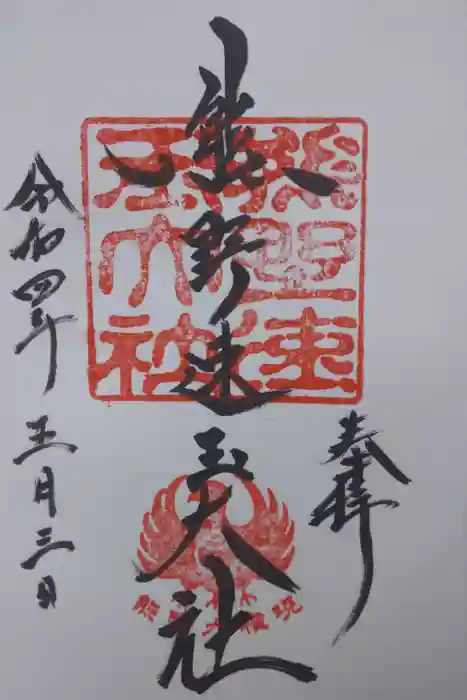 奉拝
熊野速玉大社
令和四年
五月三日
熊野速玉大社